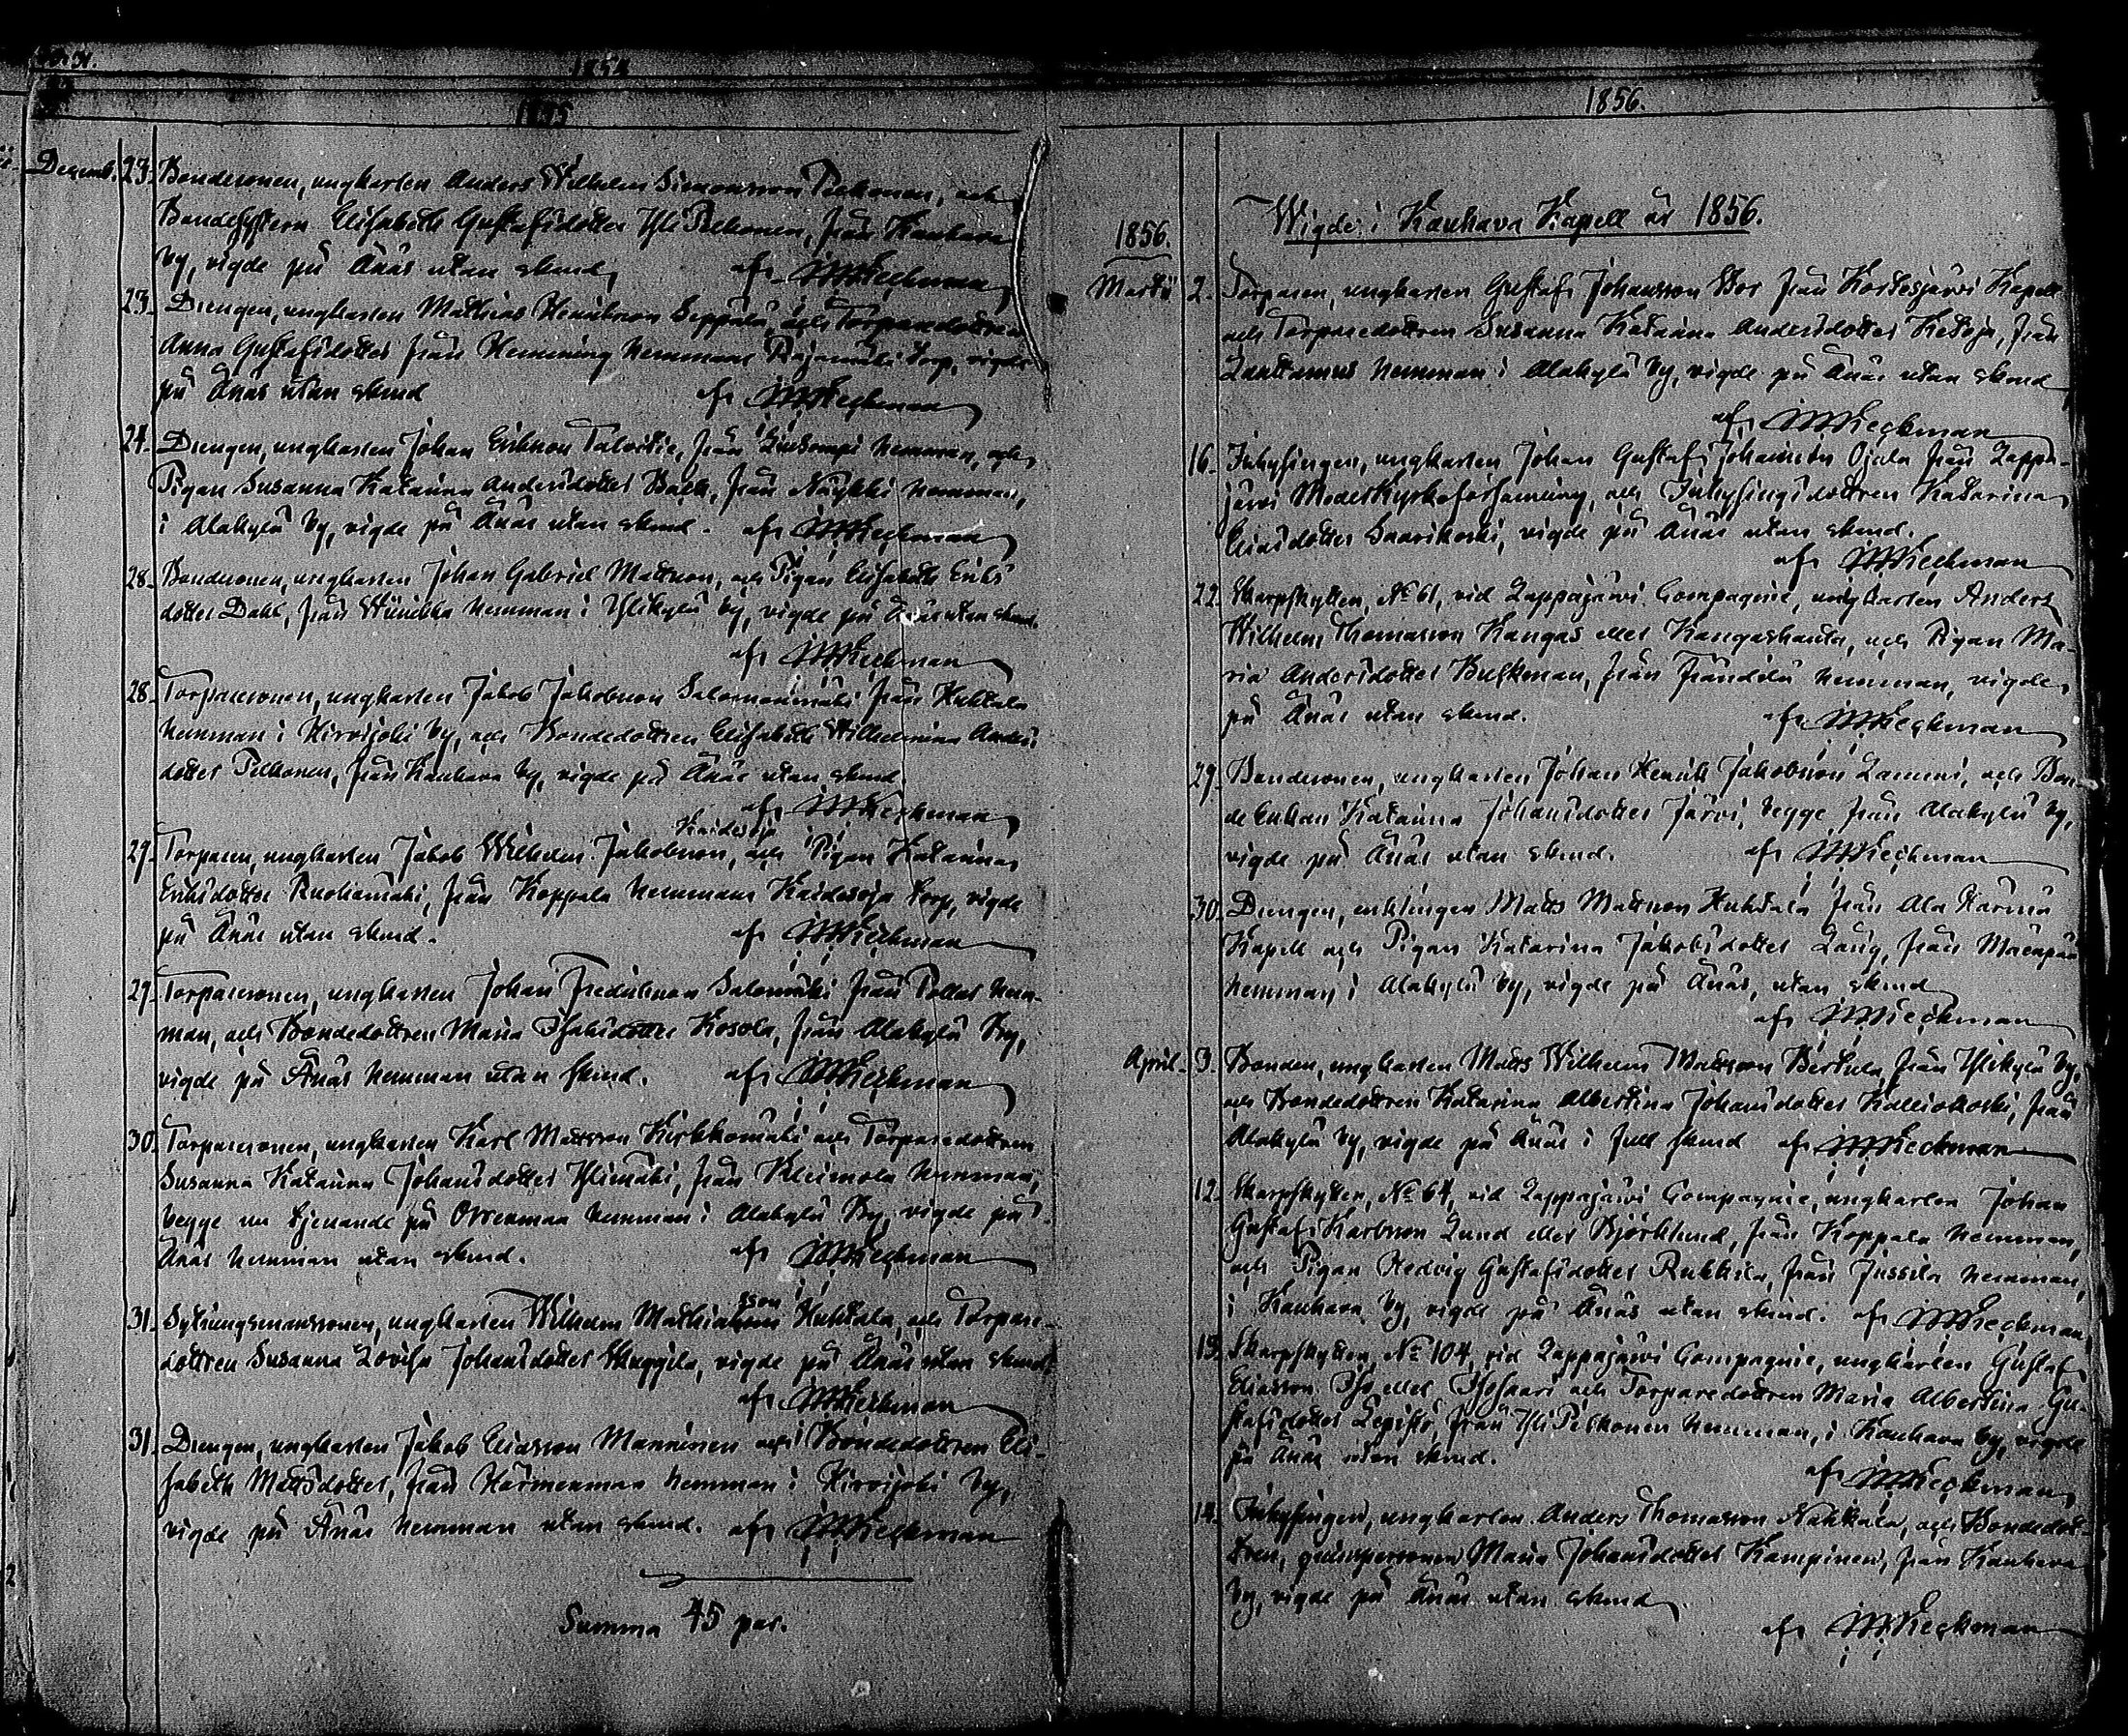 1855
Decemb. 23. Bondesonen, ungkarlen Anders Wilhelm Simonsson Pelkonen, och
Bondesystern Elisabeth Gustafsdotter Yli Pelkonen, från Kauhava
by, vigde på Änäs utan skrud, af
23. Drengen, ungkarlen Mathias Henriksson Seppälä, och Torparedottren
Anna Gustafsdotter från Hemming hemmans Rajamäki torp, vigde
på Änäs utan skrud af
24. Drengen, ungkarlen Johan Eriksson Talvitie, från hemman, och
Pigan Susanna Katarina Andersdotter Bäck, från Näykki hemman,
i Alakylä by, vigde på Änäs utan skrud. af
28. Bondesonen, ungkarlen Johan Gabriel Mattsson, och Pigan Elisabeth Eriks
dotter Dahl, från hemman i Ylikylä by, vigde på Änäs utan skrud.
af
28. Torparesonen, ungkarlen Jakob Jakobsson Salomonmäki från Huhtala
hemman i Hirvijoki by, och Bondedottren Elisabeth Wilhelmina Anders
dotter Pelkonen, från Kauhava by, vigde på Änäs utan skrud.
af
Kaidesoja
29. Torparen, ungkarlen Jakob Wilhelm Jakobsson, och Pigan Katarina
Eriksdotter Ruohamäki, från Koppala hemmans Kaidesoja torp, vigde
på Änäs utan skrud. af
29. Torparesonen, ungkarlen Johan Fredriksson Salomäki från Pollari hem-
man, och Bondedottren Maria Isaksdotter Kosola, från Alakylä By,
vigde på Änäs hemman utan skrud. af
30. Torparesonen, ungkarlen Karl Mattsson Kirkkomäki och Torparedottren
Susanna Katarina Johansdotter Ylimäki, från Kleimola hemman,
begge nu tjenande på hemman i Alakylä By, vigde på
Änäs hemman utan skrud. af
31. Sytningsmanssonen, ungkarlen Wilhelm Mathiasson Huhtala, och Torpare-
dottren Susanna Lovisa Johansdotter Skuggila, vigde på Änäs utan skrud,
af
31. Drengen, ungkarlen Jakob Eliasson Manninen och Bondedottren Eli-
sabeth Mattsdotter, från Härmenmaa hemman i Hirvijoki by,
vigde på Änäs hemman utan skrud. af
Summa 45 par.
1856.
Wigde i Kauhava Kapell år 1856.
1856.
Martii 2. Torparen, ungkarlen Gustaf Johansson Stor från Kortesjärvi Kapell
och Torparedottren Susanna Katarina Andersdotter Ketoja, från
Lauttamus hemman i Alakylä by, vigde på Änäs utan skrud
af
16. Inhysingen, ungkarlen Johan Gustaf Johansson Ojala från Lappa-
järvi Moderkyrkoförsamling, och Inhysingsdottren Katarina
Eliasdotter Saarikoski, vigde på Änäs utan skrud.
af
22. Skarpskytten, No 61, vid Lappajärvi Compagnie, ungkarlen Anders
Wilhelm Thomasson Kangas eller Kangashauta, och Pigan Ma-
ria Andersdotter Buskman, från Frändilä hemman, vigde
på Änäs utan skrud. af
29. Bondesonen, ungkarlen Johan Henrik Jakobsson Lammi, och Bon-
de Enkan Katarina Johansdotter Järvi, begge från Alakylä by,
vigde på Änäs utan skrud. af
30. Drengen, enklingen Matts Mattsson Huhtala från Ala Härmä
Kapell och Pigan Katarina Jakobsdotter Lång, från Mäenpää
hemman i Alakylä by, vigde på Änäs, utan skrud
af
April. 3. Bonden, ungkarlen Matts Wilhelm Mattsson Bertula, från Ylikylä by,
och Bondedottren Katarina Albertina Johansdotter Kalliokoski, från
Alakylä by, vigde på Änäs i full skrud af
12. Skarpskytten, No 64, vid Lappajärvi Compagnie, ungkarlen Johan
Gustaf Karlsson Lund eller Björklund, från Koppala hemman,
och Pigan Hedvig Gustafsdotter Rukkila, från Jussila hemman,
i Kauhava by, vigde på Änäs utan skrud. af
13. Skarpskytten, No 104, vid Lappajärvi Compagnie, ungkarlen Gustaf
Eliasson Iso eller Isosaari och Torparedottren Maria Albertina Gu-
stafsdotter Lepistö, från Yli Pelkonen hemman, i Kauhava by, vigde
på Änäs utan skrud.
af
14. Inhysingen, ungkarlen Anders Thomasson Nahkala, och Bondedot-
tren, qvinspersonen Maria Johansdotter Kampinen, från Kauhava
by, vigde på Änäs utan skrud
af